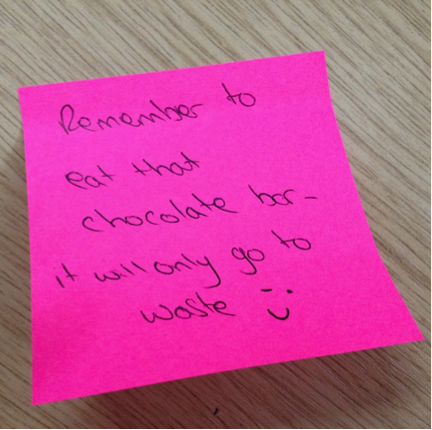 Remember to
eat that
chocolate bar-
it will only go to
waste :)